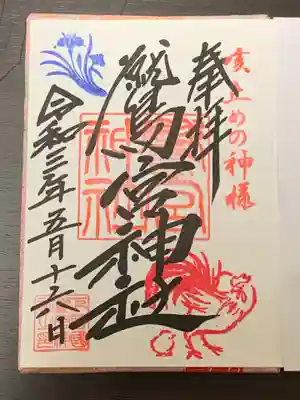 咳止めの神様
奉拝
鷲宮神社
令和三年五月十六日